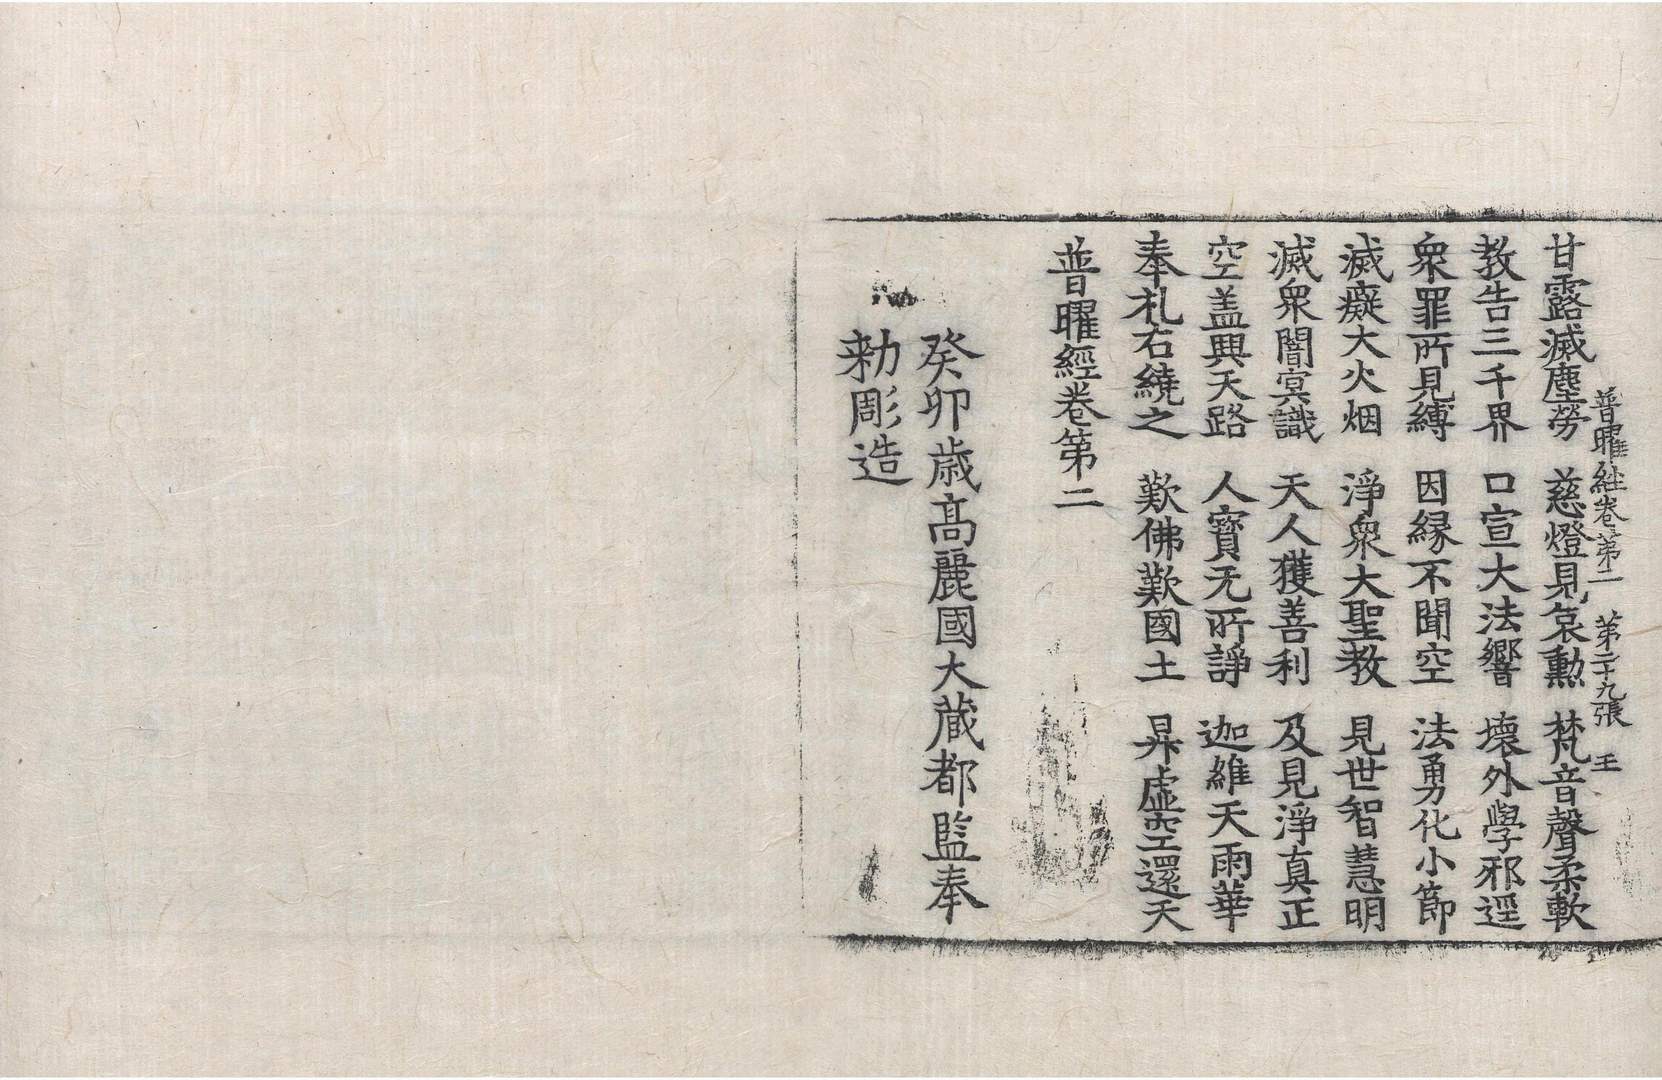 普曜経卷第二 第二十九張 王
甘露滅塵勞 慈燈見哀勲 梵音聲柔軟
教告三千界 口宣大法響 壊外學邪逕
衆罪所見縛 因縁不聞空 法勇化小節
滅癡大火烟 淨衆大聖教 見世智慧明
滅衆闇冥識 天人獲善利 及見淨真正
空盖興天路 人寶无所諍 迦維天雨華
奉札右繞之 歎佛歎國土 昇虚空還天
普曜經卷第二
癸卯歳髙麗國大蔵都監奉
勑彫造